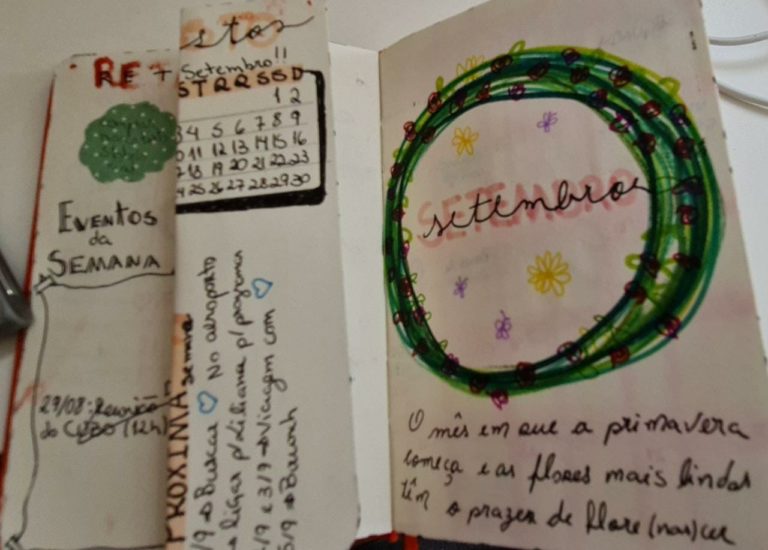 RE
Eventos
da
Semana
29/08: Reunião
do CUBO (12h)
Setembro!!
S T Q Q S S D
1 2
3 4 5 6 7 8 9
11 12 13 14 15 16
18 19 20 21 22 23
25 26 27 28 29 30
PRÓXIMA semana
Buscar ♡ No aeroporto
ligar p/ Liliana p/ programa
e 3/9 → Viagem com ♡
/9 → Brunch
SETEMBRO
setembro
O mês em que a primavera
começa e as flores mais lindas
têm o prazer de flore(nas)cer